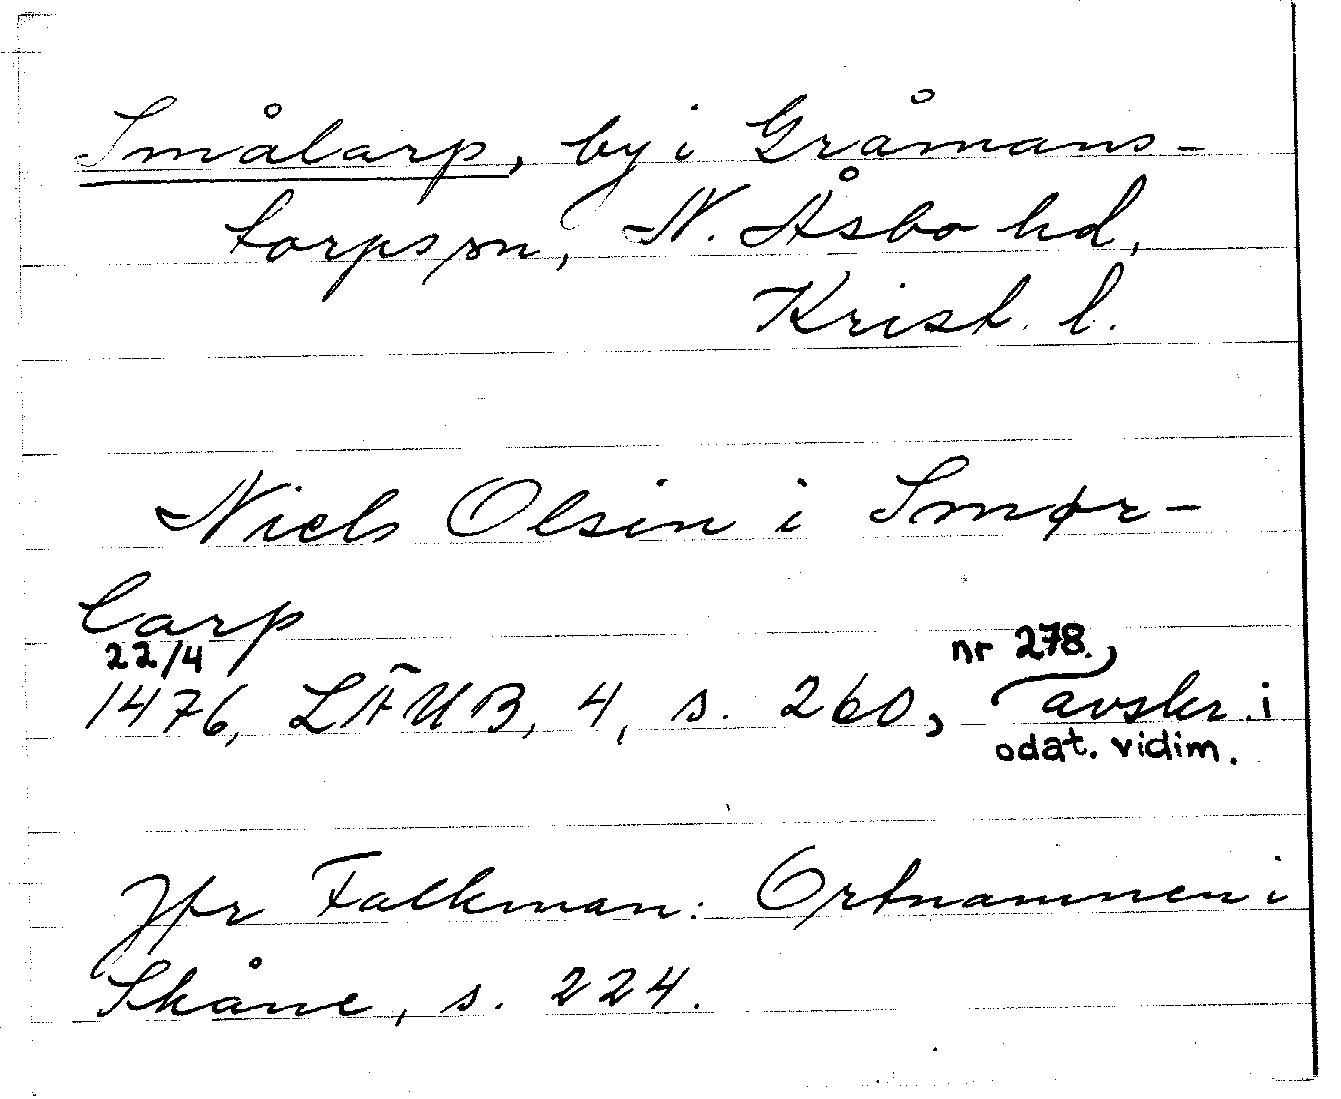 Smålarp, by i Gråmans-
torps sn, N. Åsbo hd,
Krist. l.
Niels Olsin i Smør-
larp
22/4
1476, LÄUB, 4, s. 260, nr 278, avskr. i
odat. vidim.
Jfr Falkman: Ortnamnen i
Skåne, s. 224.